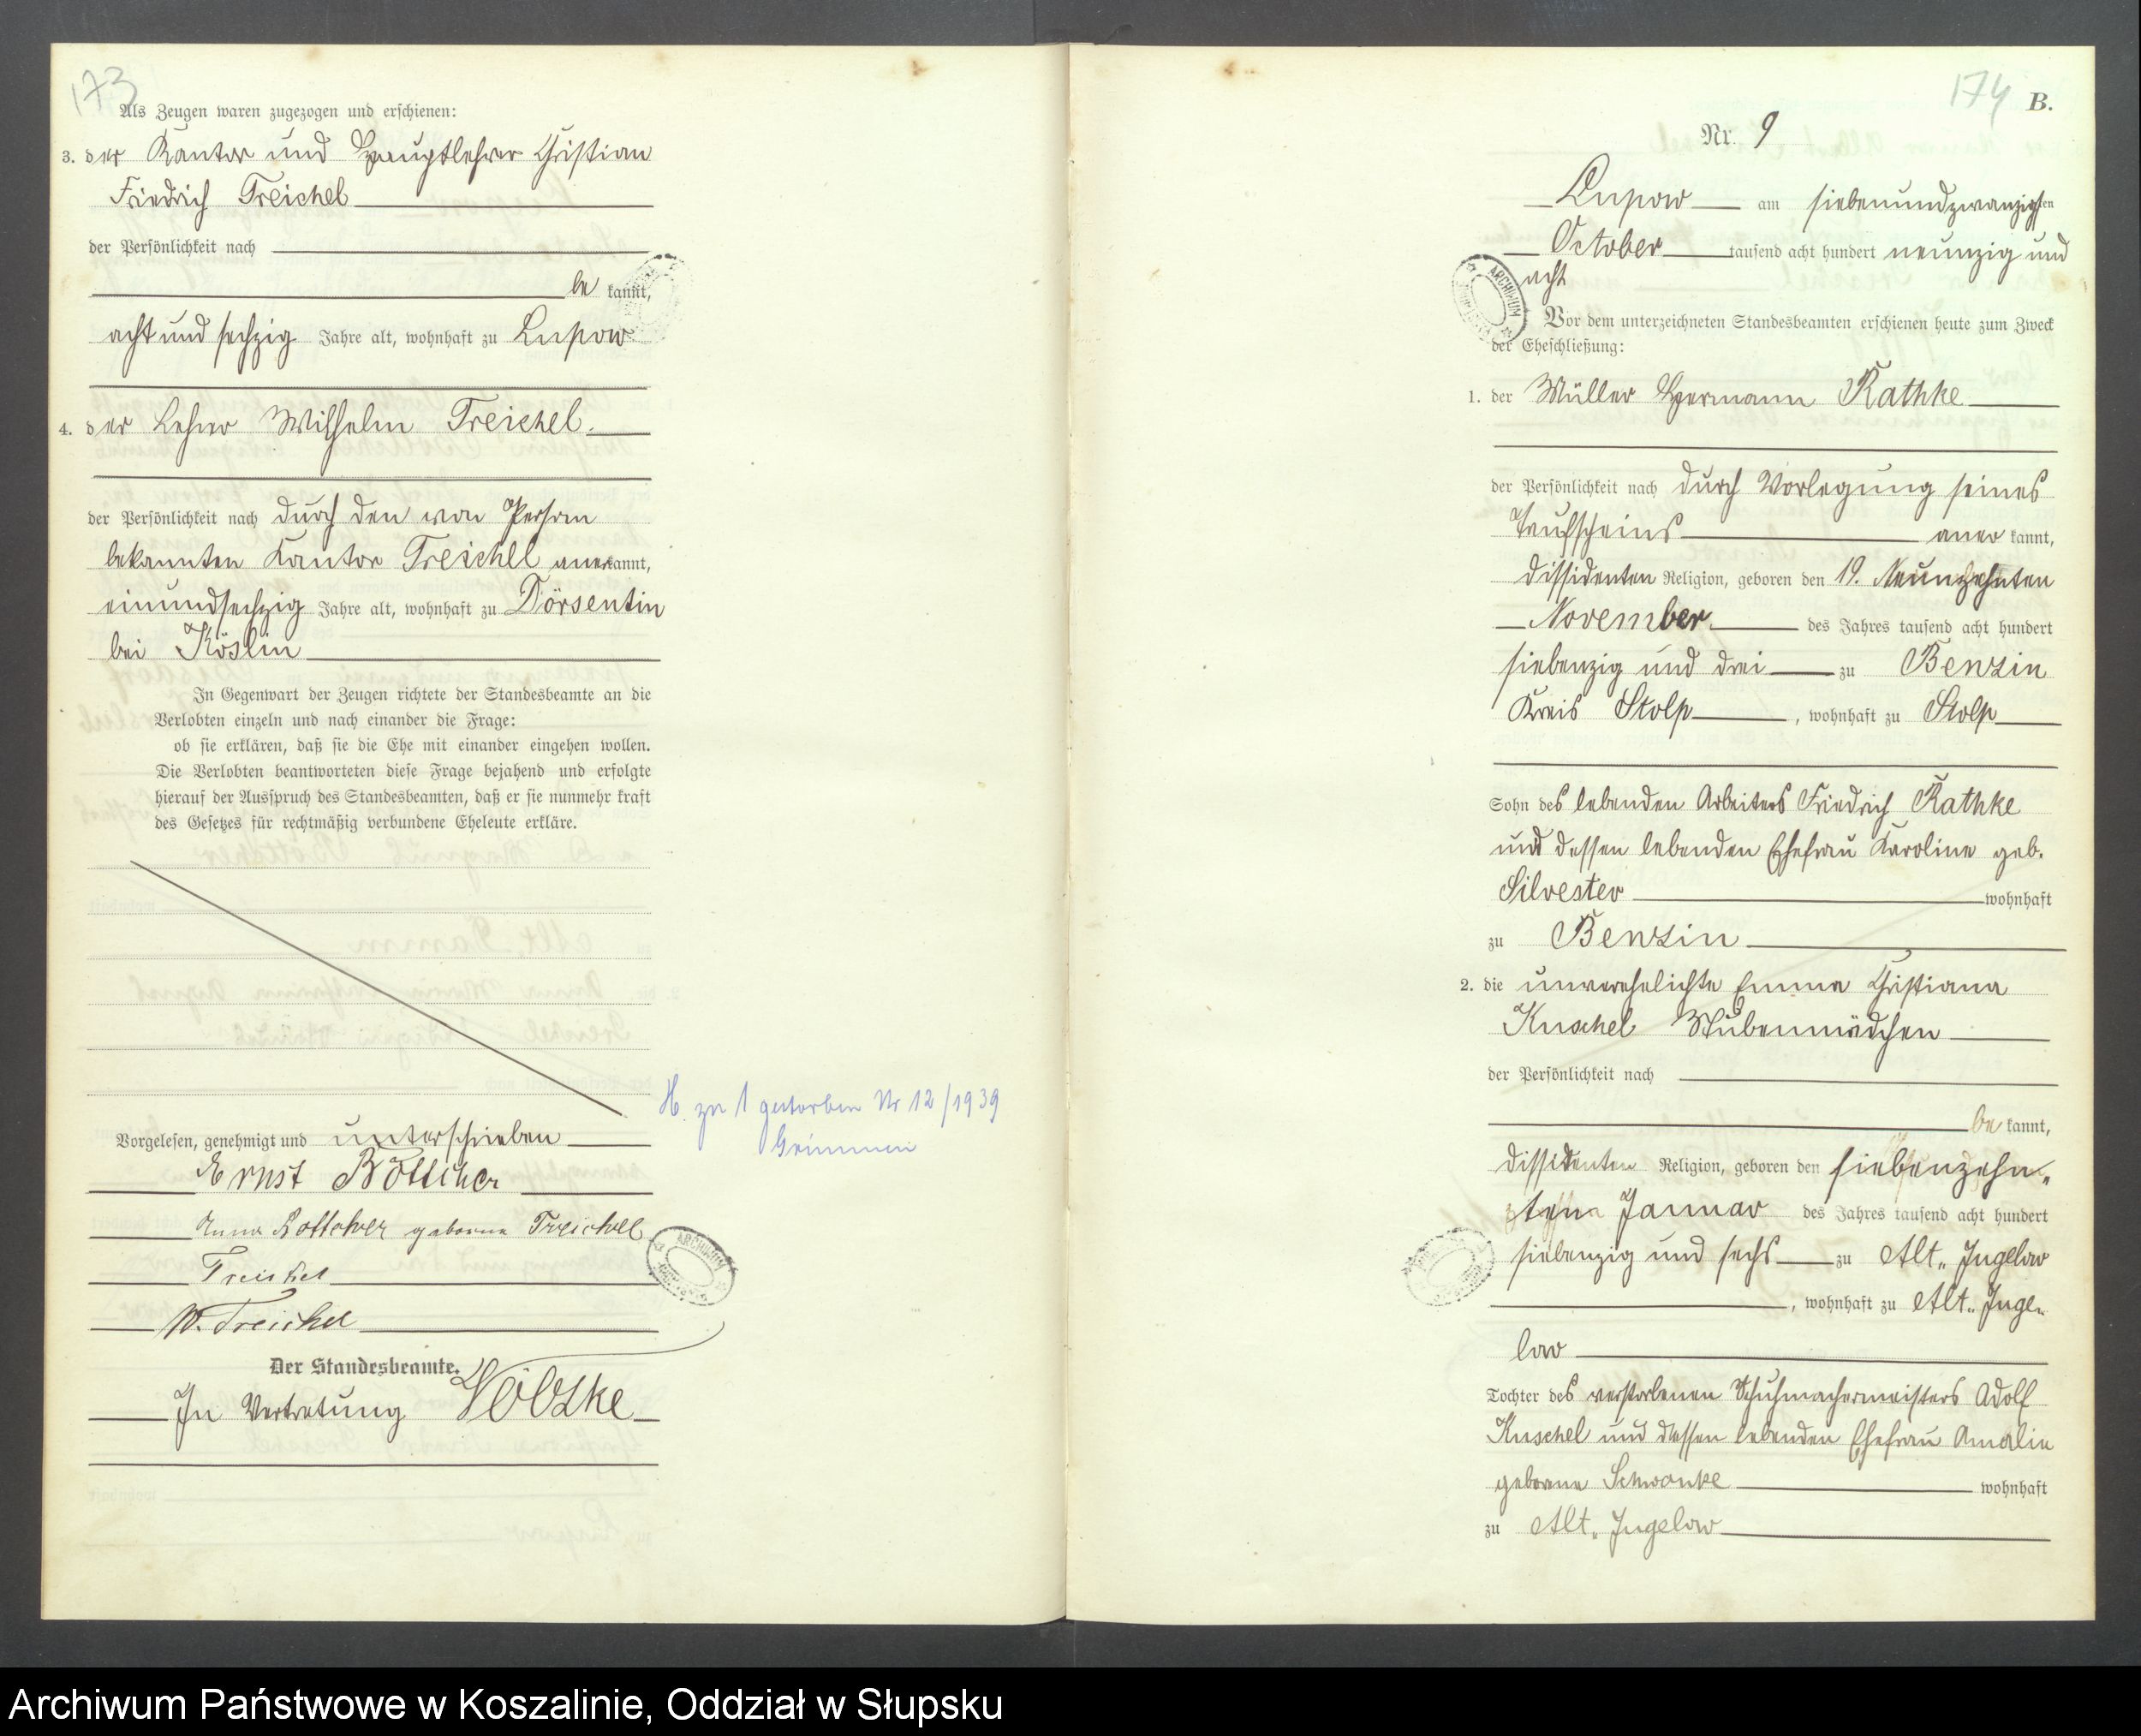 173
Als Zeugen waren zugezogen und erschienen:
3. der Kantor und Hauptlehrer Christian
Friedrich Treichel
der Persönlichkeit nach
be kannt,
acht und sechzig Jahre alt, wohnhaft zu Lupow
4. der Lehrer Wilhelm Treichel.
der Persönlichkeit nach durch den von Person
bekannten Kantor Treichel anerkannt,
einundsechzig Jahre alt, wohnhaft zu Dörsentin
bei Köslin
In Gegenwart der Zeugen richtete der Standesbeamte an die
Verlobten einzeln und nach einander die Frage:
ob sie erklären, daß sie die Ehe mit einander eingehen wollen.
Die Verlobten beantworteten diese Frage bejahend und erfolgte
hierauf der Ausspruch des Standesbeamten, daß er sie nunmehr kraft
des Gesetzes für rechtmäßig verbundene Eheleute erkläre.
H. zu 1 gestorben Nr 12/1939
Grimmen
Vorgelesen, genehmigt und unterschrieben
Ernst Böttcher
Anna Böttcher geborne Treichel
Treichel
W. Treichel
Der Standesbeamte.
In Vertretung Wobzke
ARCHIWUM
174
B.
Nr. 9
Lupow am siebenundzwanzigsten
October tausend acht hundert neunzig und
acht
ARCHIWUM
Vor dem unterzeichneten Standesbeamten erschienen heute zum Zweck
der Eheschließung:
1. der Müller Hermann Rathke
der Persönlichkeit nach durch Vorlegung seines
Taufscheins aner kannt,
dissidenten Religion, geboren den 19. Neunzehnten
November des Jahres tausend acht hundert
siebenzig und drei zu Benzin
Kreis Stolp, wohnhaft zu Stolp
Sohn des lebenden Arbeiters Friedrich Rathke
und dessen lebenden Ehefrau Karoline geb.
Silvester wohnhaft
zu Benzin
2. die unverehelichte Emma Christiana
Kuschel Stubenmädchen
der Persönlichkeit nach
be kannt,
dissidenten Religion, geboren den siebenzehn„
ten Januar des Jahres tausend acht hundert
siebenzig und sechs zu Alt„ Jugelow
, wohnhaft zu Alt„ Juge„
low
Tochter des verstorbenen Schuhmachermeisters Adolf
Kuschel und dessen lebenden Ehefrau Amalie
geborne Schwanke wohnhaft
zu Alt„ Jugelow
Archiwum Państwowe w Koszalinie, Oddział w Słupsku